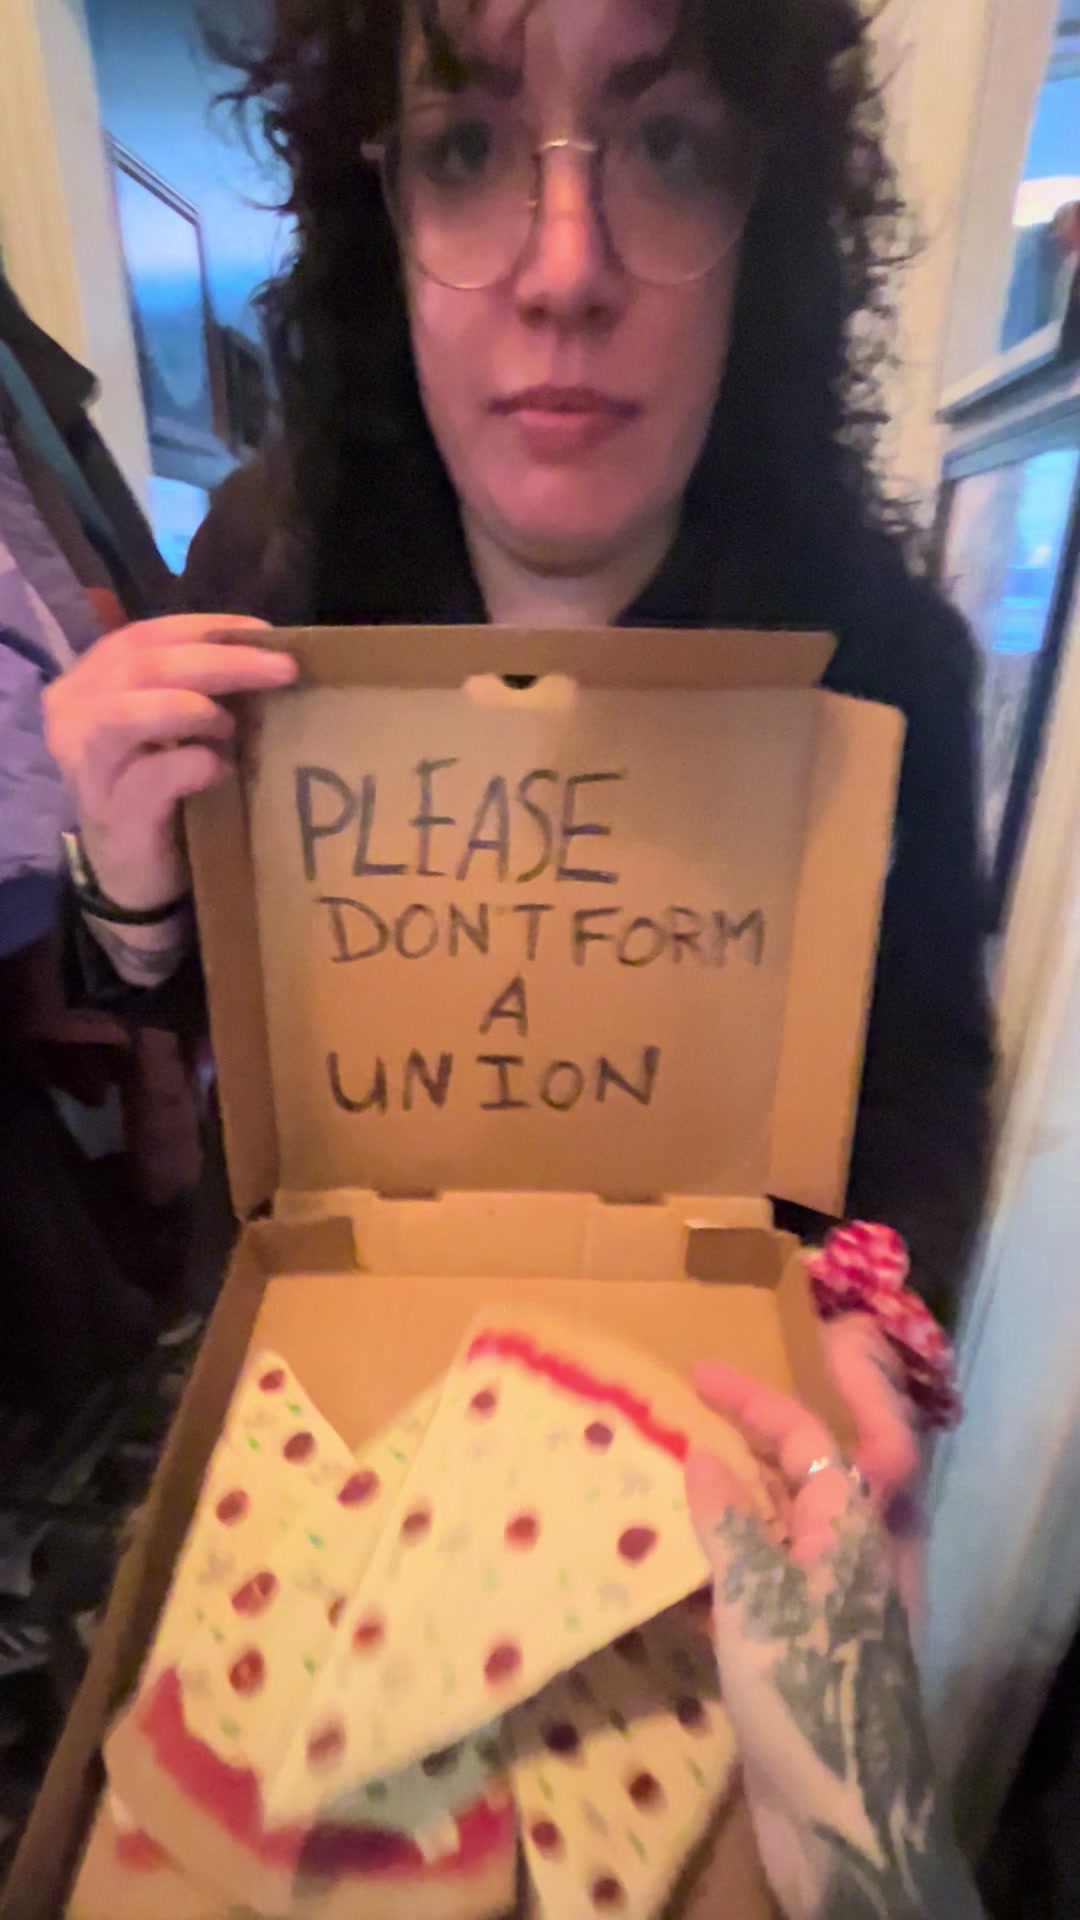 PLEASE
DON'T FORM
A
UNION